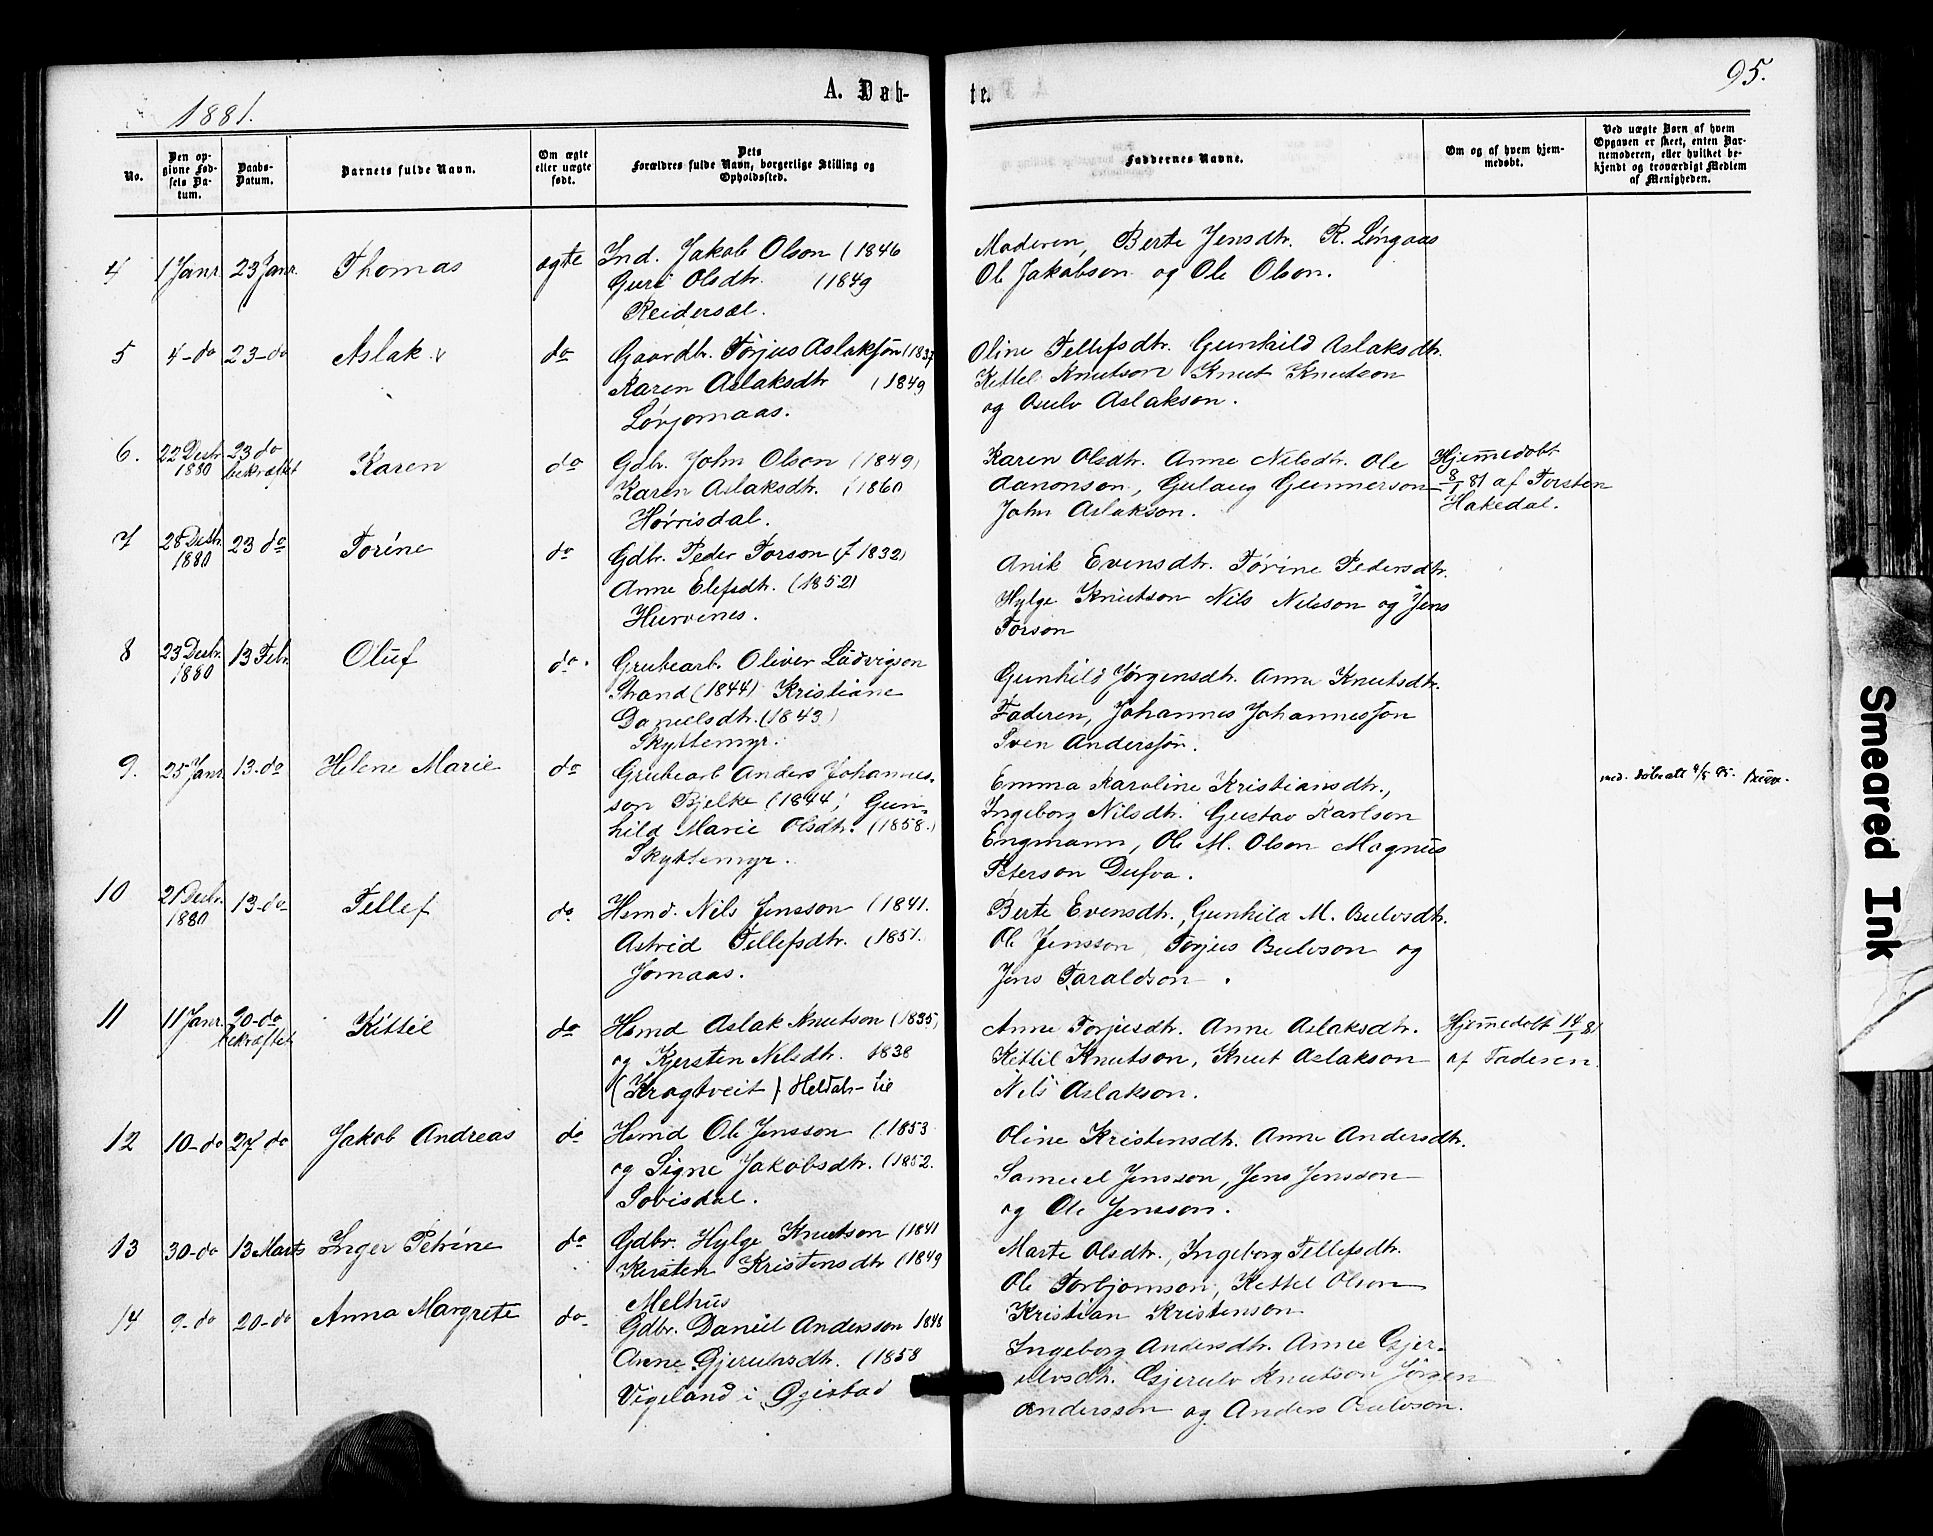 1881.
A. Døb-
te.
95.
No.
Den op-
givne Fød-
sels Da-
tum.
Daabs-
Datum.
Barnets fulde Navn.
Om ægte
eller uægte
født.
Dets
Forældres fulde Navn, borgerlige Stilling og
Opholdssted.
Faddernes Navne.
Om og af hvem hjem-
medøbt.
Ved uægte Børn af hvem
Opgaven er skeet, enten Bar-
nemoderen, eller hvilket be-
kjendt og troværdigt Medlem
af Menigheden.
4 1 Janr 23 Janr. Thomas ægte Ind. Jakob Olson (1846
Guri Olsdtr. (1849
Reidersæl.
Moderen, Berte Jensdtr. R. Løngaas
Ole Jakobson og Ole Olson.
5 4-do 23-do Aslak do Gaardbr. Torjus Aslaksson (1837
Karen Aslaksdtr (1849
Lørjomaas.
Oline Tellefsdtr. Gunhild Aslaksdtr.
Kittel Knutson Knut Knutson
og Osulv Aslakson.
6. 22 Desbr 1880 23 do bekræftet Karen do Gdbr. John Olson (1849)
Karen Aslaksdtr. (1860
Hørrisdal.
Karen Olsdtr. Anne Nilsdtr. Ole
Aanonson, Gulaug Gunnerson
John Aslakson.
Hjemmedøbt
8/1 81 af Torsten
Hakedal.
7 28 Desbr. 1880 23 do Torine do Gdbr. Peder Torson (f 1832)
Anne Elefsdtr. (1852)
Hurvenes.
Anik Evensdtr. Torine Pedersdtr.
Hylge Knutson Nils Nilsson og Jens
Torson
8 23 Desbr. 1880 13 Febr. Oluf do. Grubearb. Oliver Ludvigson
Strand (1844) Kristiane
Danielsdtr. (1843)
Skyttemyr.
Gunhild Jørgensdtr. Anne Knutsdtr.
Faderen, Johannes Johannesson
Sven Andersson.
9. 25 Janr 13-do Helene Marie do Grubearb Anders Johannes-
son Bjelke (1844, Gun-
hild Marie Olsdtr. (1858.)
Skyttemyr.
Emma Karoline Kristiansdtr.,
Ingeborg Nilsdtr. Gustav Karlson
Engmann, Ole M. Olson Magnus
Peterson Dufva.
med. døbeatt 4/5 95.
10 21 Desbr. 1880 13-do Tellef do Hsmd. Nils Jensson (1841.
Astrid Tellefsdtr. (1851.
Jomaas.
Berte Evensdtr., Gunhild M. Osulvsdtr.
Ole Jensson, Torjus Osulvson og
Jens Taraldson.
11 11 Janr. 20-do bekræftet Kittil do Hsmd Aslak Knutson (1835)
og Kjersten Nilsdtr. 1838
(Kragtveit) Heldals-lie
Anne Torjusdtr. Anne Aslaksdtr.
Kittil Knutson, Knut Aslakson
Nils Aslakson.
Hjemmedøbt 14/1 81
af Faderen.
12 10-do 27 do Jakob Andreas do Hsmd Ole Jensson (1853
og Signe Jakobsdtr. (1852.
Sovisdal.
Oline Kristensdtr. Anne Andersdtr.
Samuel Jensson, Jens Jensson
og Ole Jensson.
13 30-do 13 Marts Inger Petrine do Gdbr. Hylge Knutson (1841
Kersten Kristensdtr (1849
Melhus
Marte Olsdtr., Ingeborg Tellefsdtr.
Ole Torbjornson, Kettel Olson
Kristian Kristenson
14 9-do 20-do Anna Margrete do Gdbr. Daniel Andersson 1848
Anne Gjerulvsdtr. (1858
Vigeland i Øgistad
Ingeborg Andersdtr. Anne Gjer-
ulvsdtr. Gjerulv Knutson Jørgen
Andersson og Anders Osulvson.
Smeared Ink